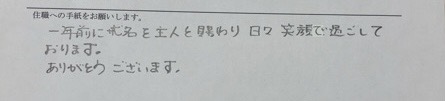 住職への手紙をお願いします。
一年前に戒名を主人と賜わり 日々 笑顔で過ごして
おります。
ありがとう ございます。